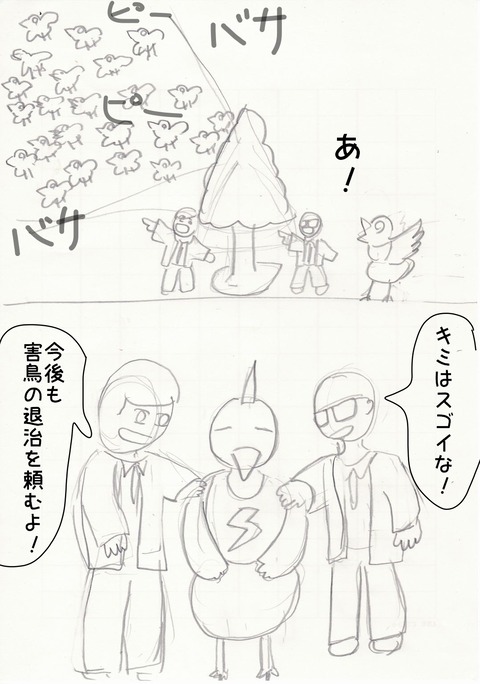 ピー
バサ
ピー
あ!
バサ
キミはスゴイな!
今後も
害鳥の退治を頼むよ!